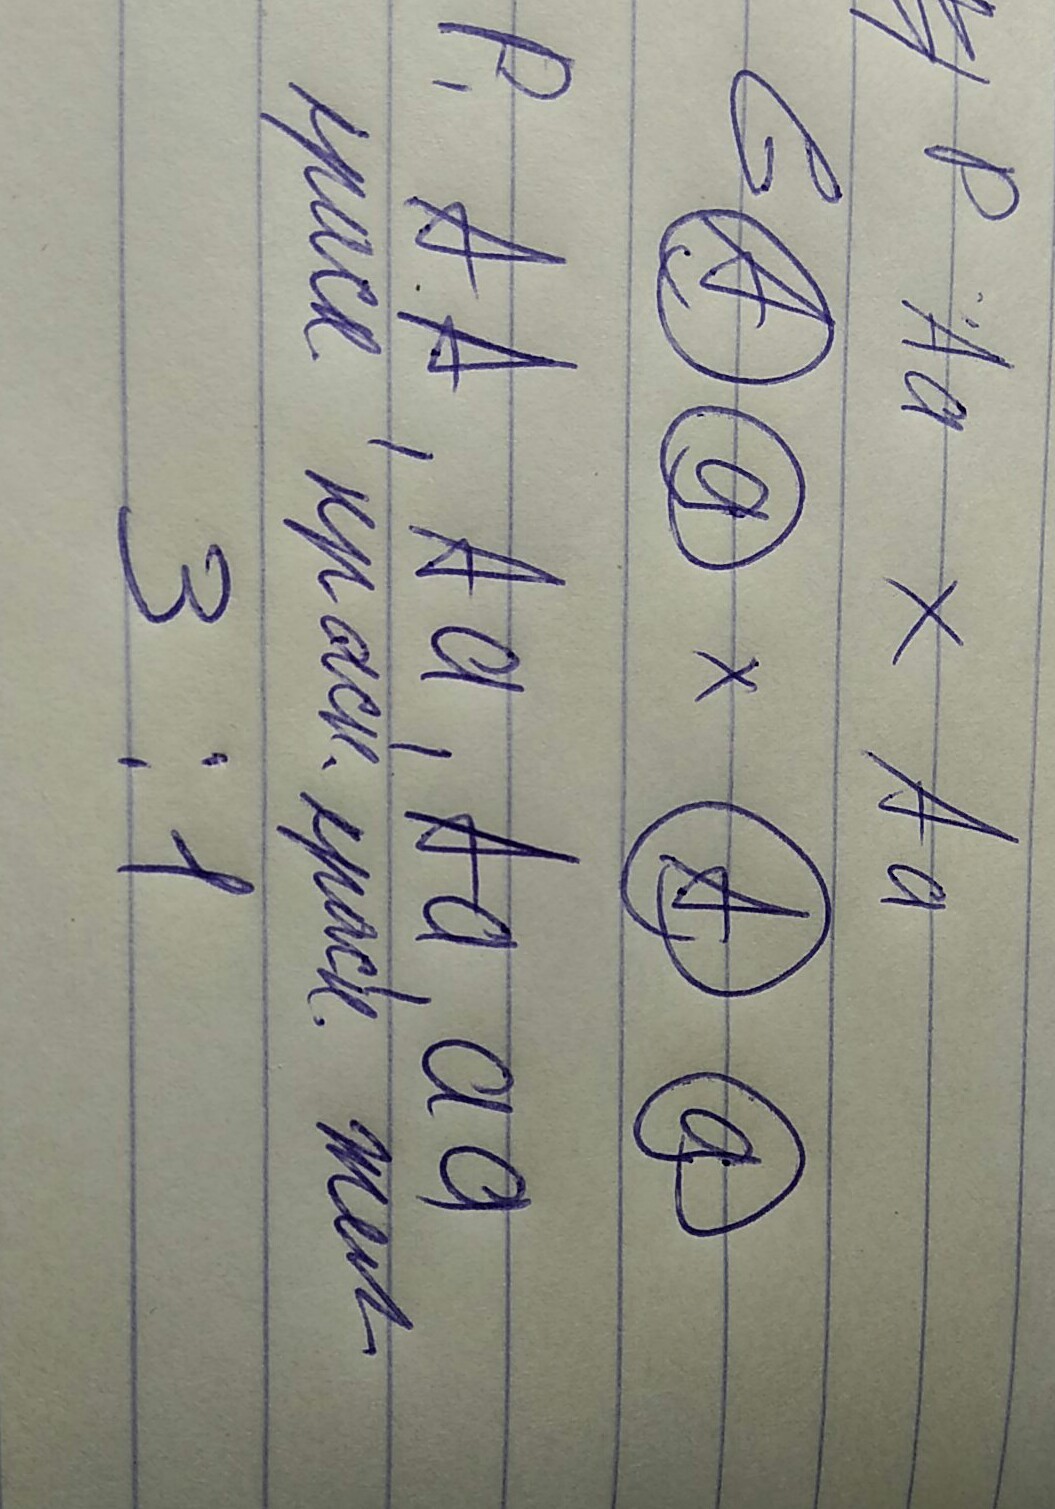 P Aa × Aa
G A a × A a
P₁ AA, Aa, Aa, aa
красн, красн. красн. жел
3 : 1